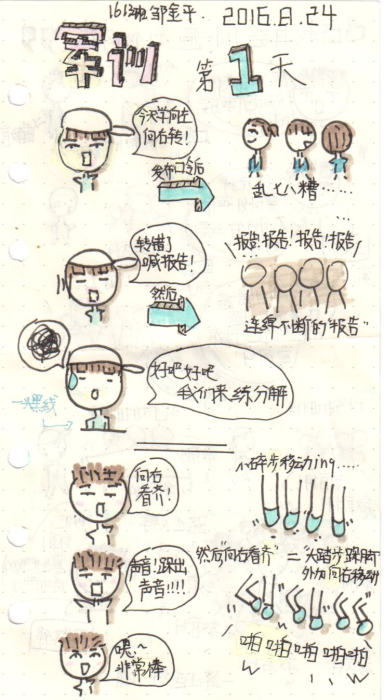 1613班 邹金平. 2016.8.24
军训
第1天
今天学向左
向右转!
发布口令后
乱七八糟......
转错了
喊报告!
然后
报告!报告!报告!报告
连绵不断的报告"
好吧好吧
我们来练分解
一头黑线
向右
看齐!
小碎步移动ing.....
声音!踩出
声音!!!!
然后"向右看齐"="大踏步踩脚
外加向右移动
嗯~
非常棒
啪啪啪啪啪